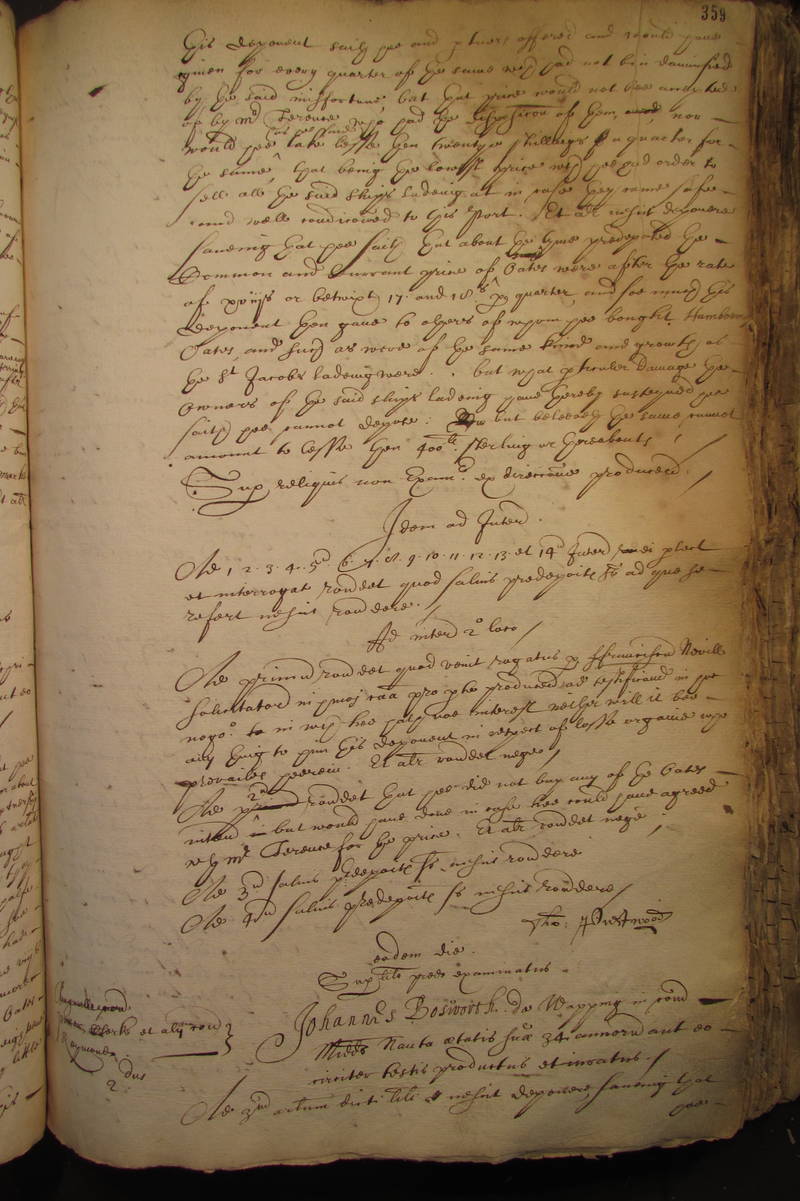 359
this deponent saith hee and others offered and would have
given for every quarter of the same with had not bin damnified
by the said misfortune, but that price would not bee accepted
of by Mr Terence who had the disposition of them, nor
would hee take lesse then twentye shillings a quarter for
as hee saith
the same, that being the lowest price with hee had order to
sell all the said ships ladeing at in case they came safe
and well conditioned to this Port. Et alr nescit deponere
saveing that hee saith that about the tyme predeposed the
Common and Currant price of Oates were after the rate
of xviijs or betwixt 17 and 18s p quarter, and soe much this
deponent then gave to others of whom hee bought Hamborow
Oates, and such as were of the same kinde and growth as
the St Jacobs ladeing were. but what pticuler damage the
Owners of the said ships ladeing have thereby susteyned hee
saith hee cannot depose: but beleeveth the same cannot
amount to lesse then 400li sterling or thereabouts
Sup reliquis non Examr ex direccone producen.
Idem ad Interr.
Ad 1. 2. 3. 4. 5. 6. 7. 8. 9. 10. 11. 12. 13. et 14 Interr ei plect
et interrogat rondet quod salvis predeposit p ad que se
refert nescit rondere.
Ad interr 2o loco
Ad primu rondet quod venit rogatus p Franciscu Nevill
in pnti caa pro pte producen ad testificand in
nego. to in with hee hath noe interest neither will it bee
any thing to him this deponent in respect of losse or gaine who
prevailes heerein. Et alr rondet nege
2
Ad rondet that hee did not buy any of the Oates
interr but would have done in case hee could have agreed
with Mr Terence for the price. Et alr rondet nege
Ad 3 salvis predeposit p nescit rondere
Ad 4 salvis predeposit p nescit rondere
Tho: Prestwood
eodem die.
Sup lilo pred examinatus
Clerke et alij con
2 dus
Johannes Bosworth de Wapping in com
Midds Nauta aetatis sua 34 annoru aut eo
circiter testis productus et iuratus.
Ad 3 arlum dicti lili nescit deponere, saveing that
hee